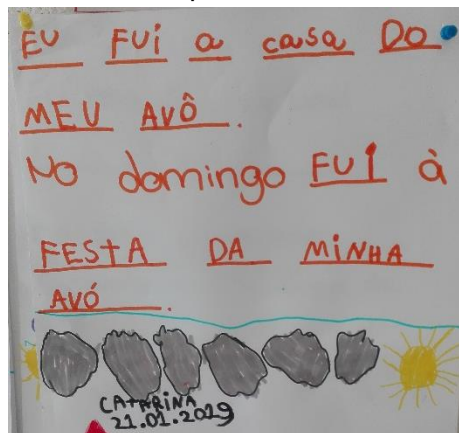 EU FUi a casa DO
MEU AVÔ.
No domingo FUI à
FEStA DA MiNHA
AVÓ.
CATARINA
21.01.2019